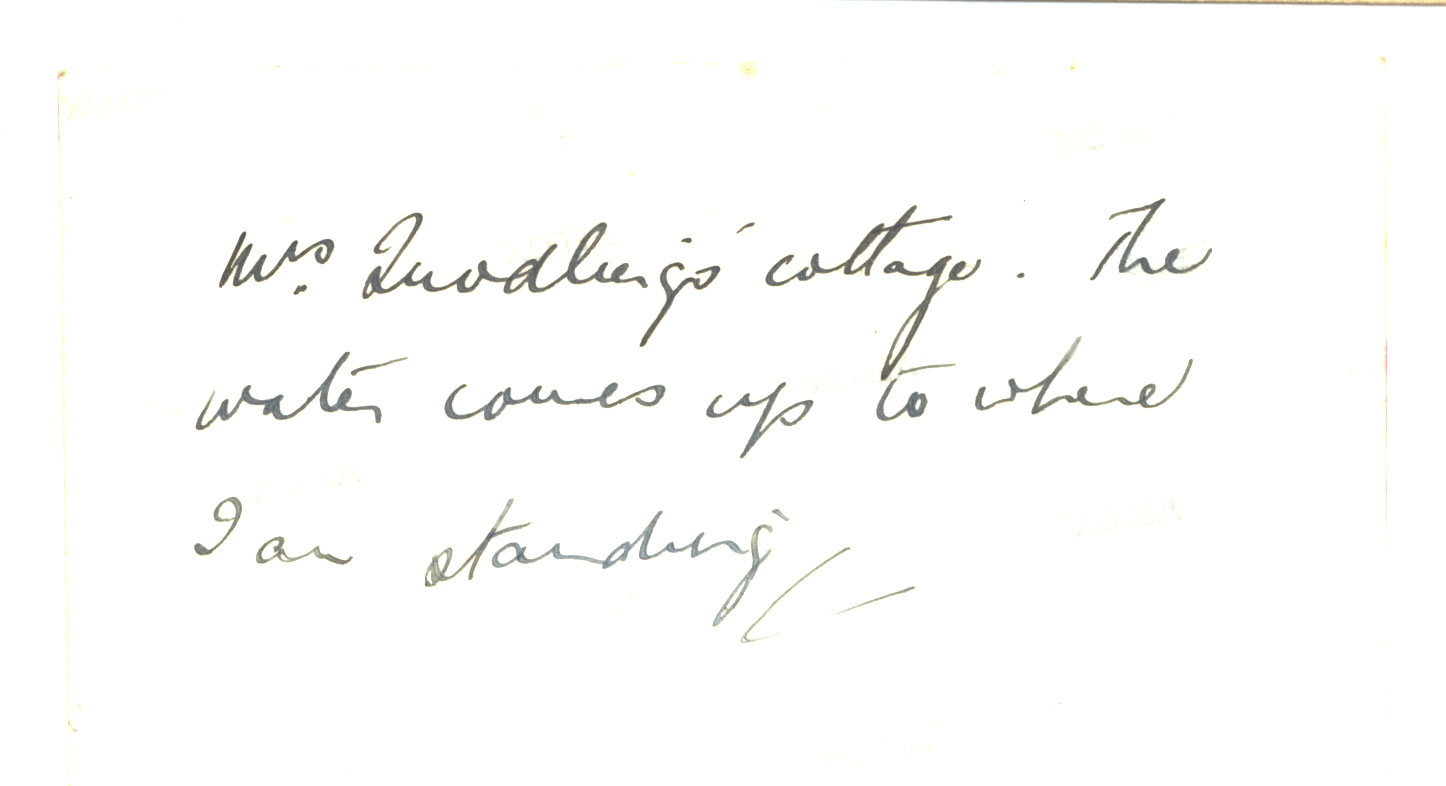 Mrs. Quodling's cottage. The
water comes up to where
I am standing